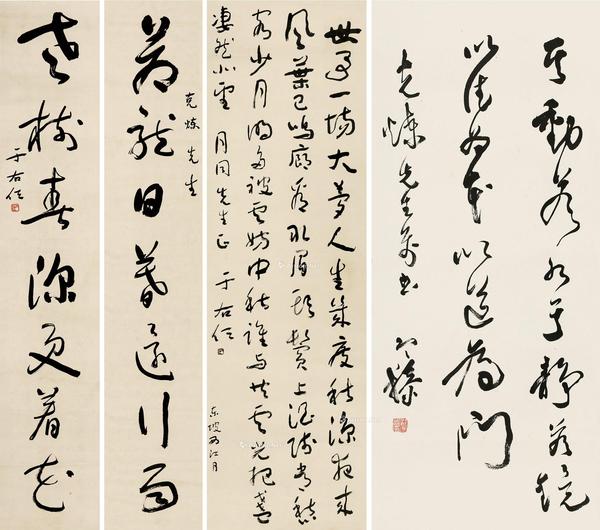 其動若水其靜若鏡
以德為本以道為門
克煉先生屬書
世事一場大夢人生幾度秋涼夜來
風葉已鳴廊看取眉頭鬢上酒賤常愁
客少月明多被雲妨中秋誰與共孤光把盞
淒然北望 月同先生正 于右任
東坡西江月
克煉先生
蒼龍日暮還行雨
老樹春深更著花
于右任